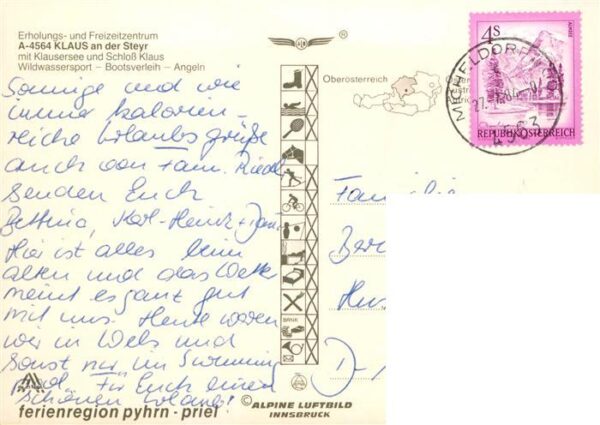 Erholungs- und Freizeitzentrum
A-4564 KLAUS an der Steyr
mit Klausersee und Schloß Klaus
Wildwassersport – Bootsverleih – Angeln
Sonnige und wie
immer kalorien-
reiche Urlaubsgrüße
auch von Fam. Riedl
senden Euch
Bettina, Karl-Heinz +
Hier ist alles beim
alten und das Wetter
meint es ganz gut
mit uns. Heute waren
wir in Wels und
sonst nur im Swimming
pool. Für Euch einen
schönen Urlaub!
ferienregion pyhrn - priel
Oberösterreich
BANK
© ALPINE LUFTBILD
INNSBRUCK
4S
ALMSEE
REPUBLIK ÖSTERREICH
MICHELDORF
4563
Familie
D-